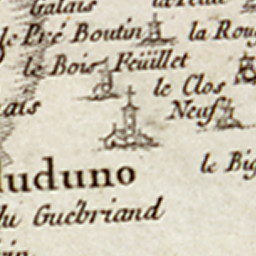 Galais
le Pré Boutin
la Rou
le Bois Feuillet
le Clos
Neuf
ais
le Big
luduno
du Guébriand